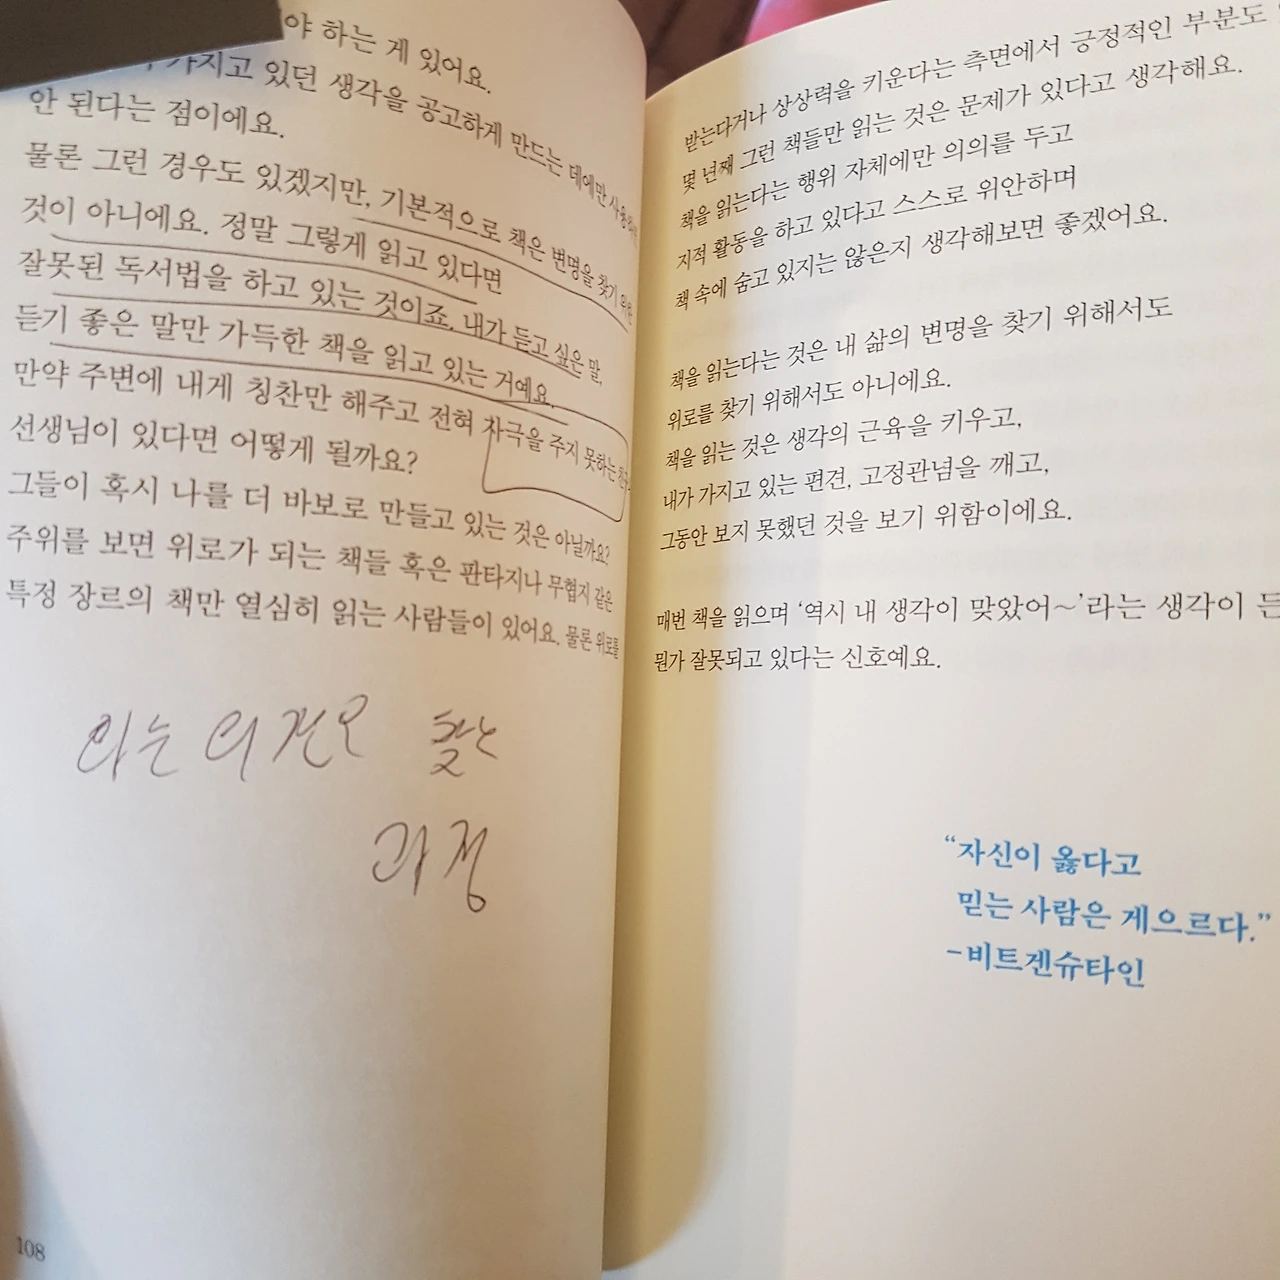 야 하는 게 있어요.
가지고 있던 생각을 공고하게 만드는 데에만
안 된다는 점이에요.
물론 그런 경우도 있겠지만, 기본적으로 책은 변명을 찾기 위한
것이 아니에요. 정말 그렇게 읽고 있다면
잘못된 독서법을 하고 있는 것이죠. 내가 듣고 싶은 말,
듣기 좋은 말만 가득한 책을 읽고 있는 거예요.
만약 주변에 내게 칭찬만 해주고 전혀 자극을 주지 못하는
선생님이 있다면 어떻게 될까요?
그들이 혹시 나를 더 바보로 만들고 있는 것은 아닐까요?
주위를 보면 위로가 되는 책들 혹은 판타지나 무협지 같은
특정 장르의 책만 열심히 읽는 사람들이 있어요. 물론 위로를
과정
108
받는다거나 상상력을 키운다는 측면에서 긍정적인 부분도
몇 년째 그런 책들만 읽는 것은 문제가 있다고 생각해요.
책을 읽는다는 행위 자체에만 의의를 두고
지적 활동을 하고 있다고 스스로 위안하며
책 속에 숨고 있지는 않은지 생각해보면 좋겠어요.
책을 읽는다는 것은 내 삶의 변명을 찾기 위해서도
위로를 찾기 위해서도 아니에요.
책을 읽는 것은 생각의 근육을 키우고,
내가 가지고 있는 편견, 고정관념을 깨고,
그동안 보지 못했던 것을 보기 위함이에요.
매번 책을 읽으며 ‘역시 내 생각이 맞았어~’라는 생각이 든
뭔가 잘못되고 있다는 신호예요.
“자신이 옳다고
믿는 사람은 게으르다.”
-비트겐슈타인